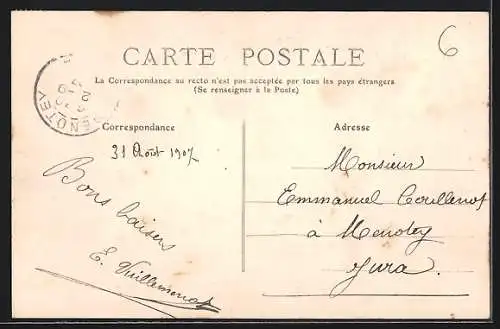 CARTE POSTALE
La Correspondance au recto n'est pas acceptée par tous les pays étrangers
(Se renseigner à la Poste)
6
Correspondance
31 Août 1907
Bons baisers
E. Vuillemenot
Adresse
Monsieur
Emmanuel
à Menotey
Jura.
MENOTEY